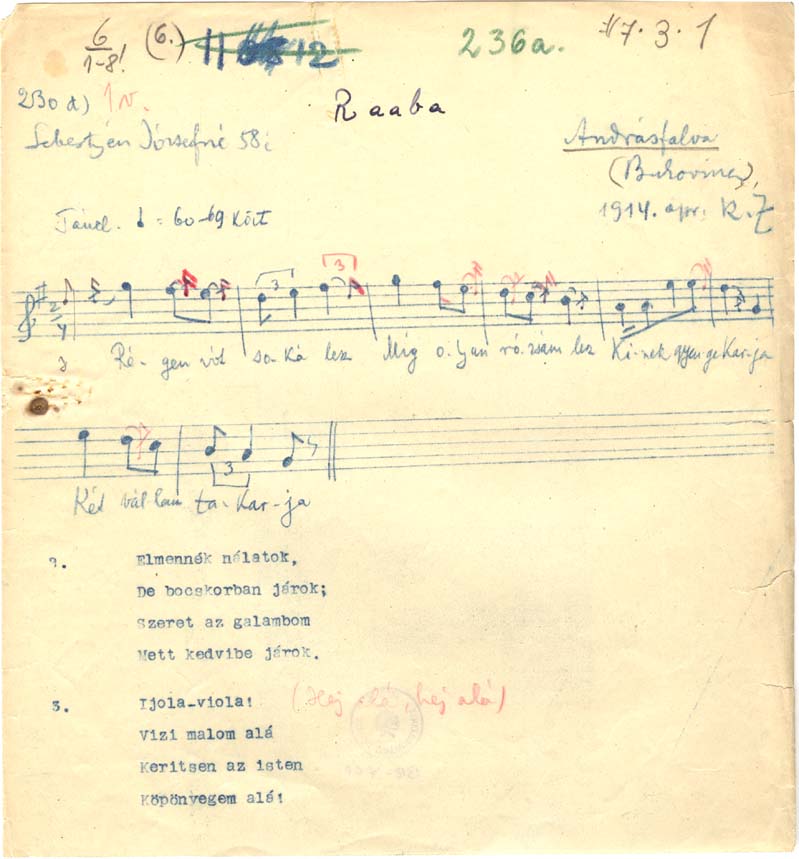 6
1-8!
(6.)
236a.
7.3.1
230 d) 1v.
Raaba
Sebestyén Józsefné 58é
Andrásfalva
(Bukovina),
1914. ápr. K.Z
= 60-69 Közt
2/4
3
3
Ré-gen vót so-ká lesz Míg o-lyan ró-zsám lesz Ki-nek gyen-ge Kar-ja
3
Két vál-lam ta-kar-ja
2. Elmennék nálatok,
De bocskorban járok;
Szeret az galambom
Mett kedvibe járok.
3. Ijola-viola! (Hej alá, hej alá)
Vizi malom alá
Keritsen az isten
Köpönyegem alá!